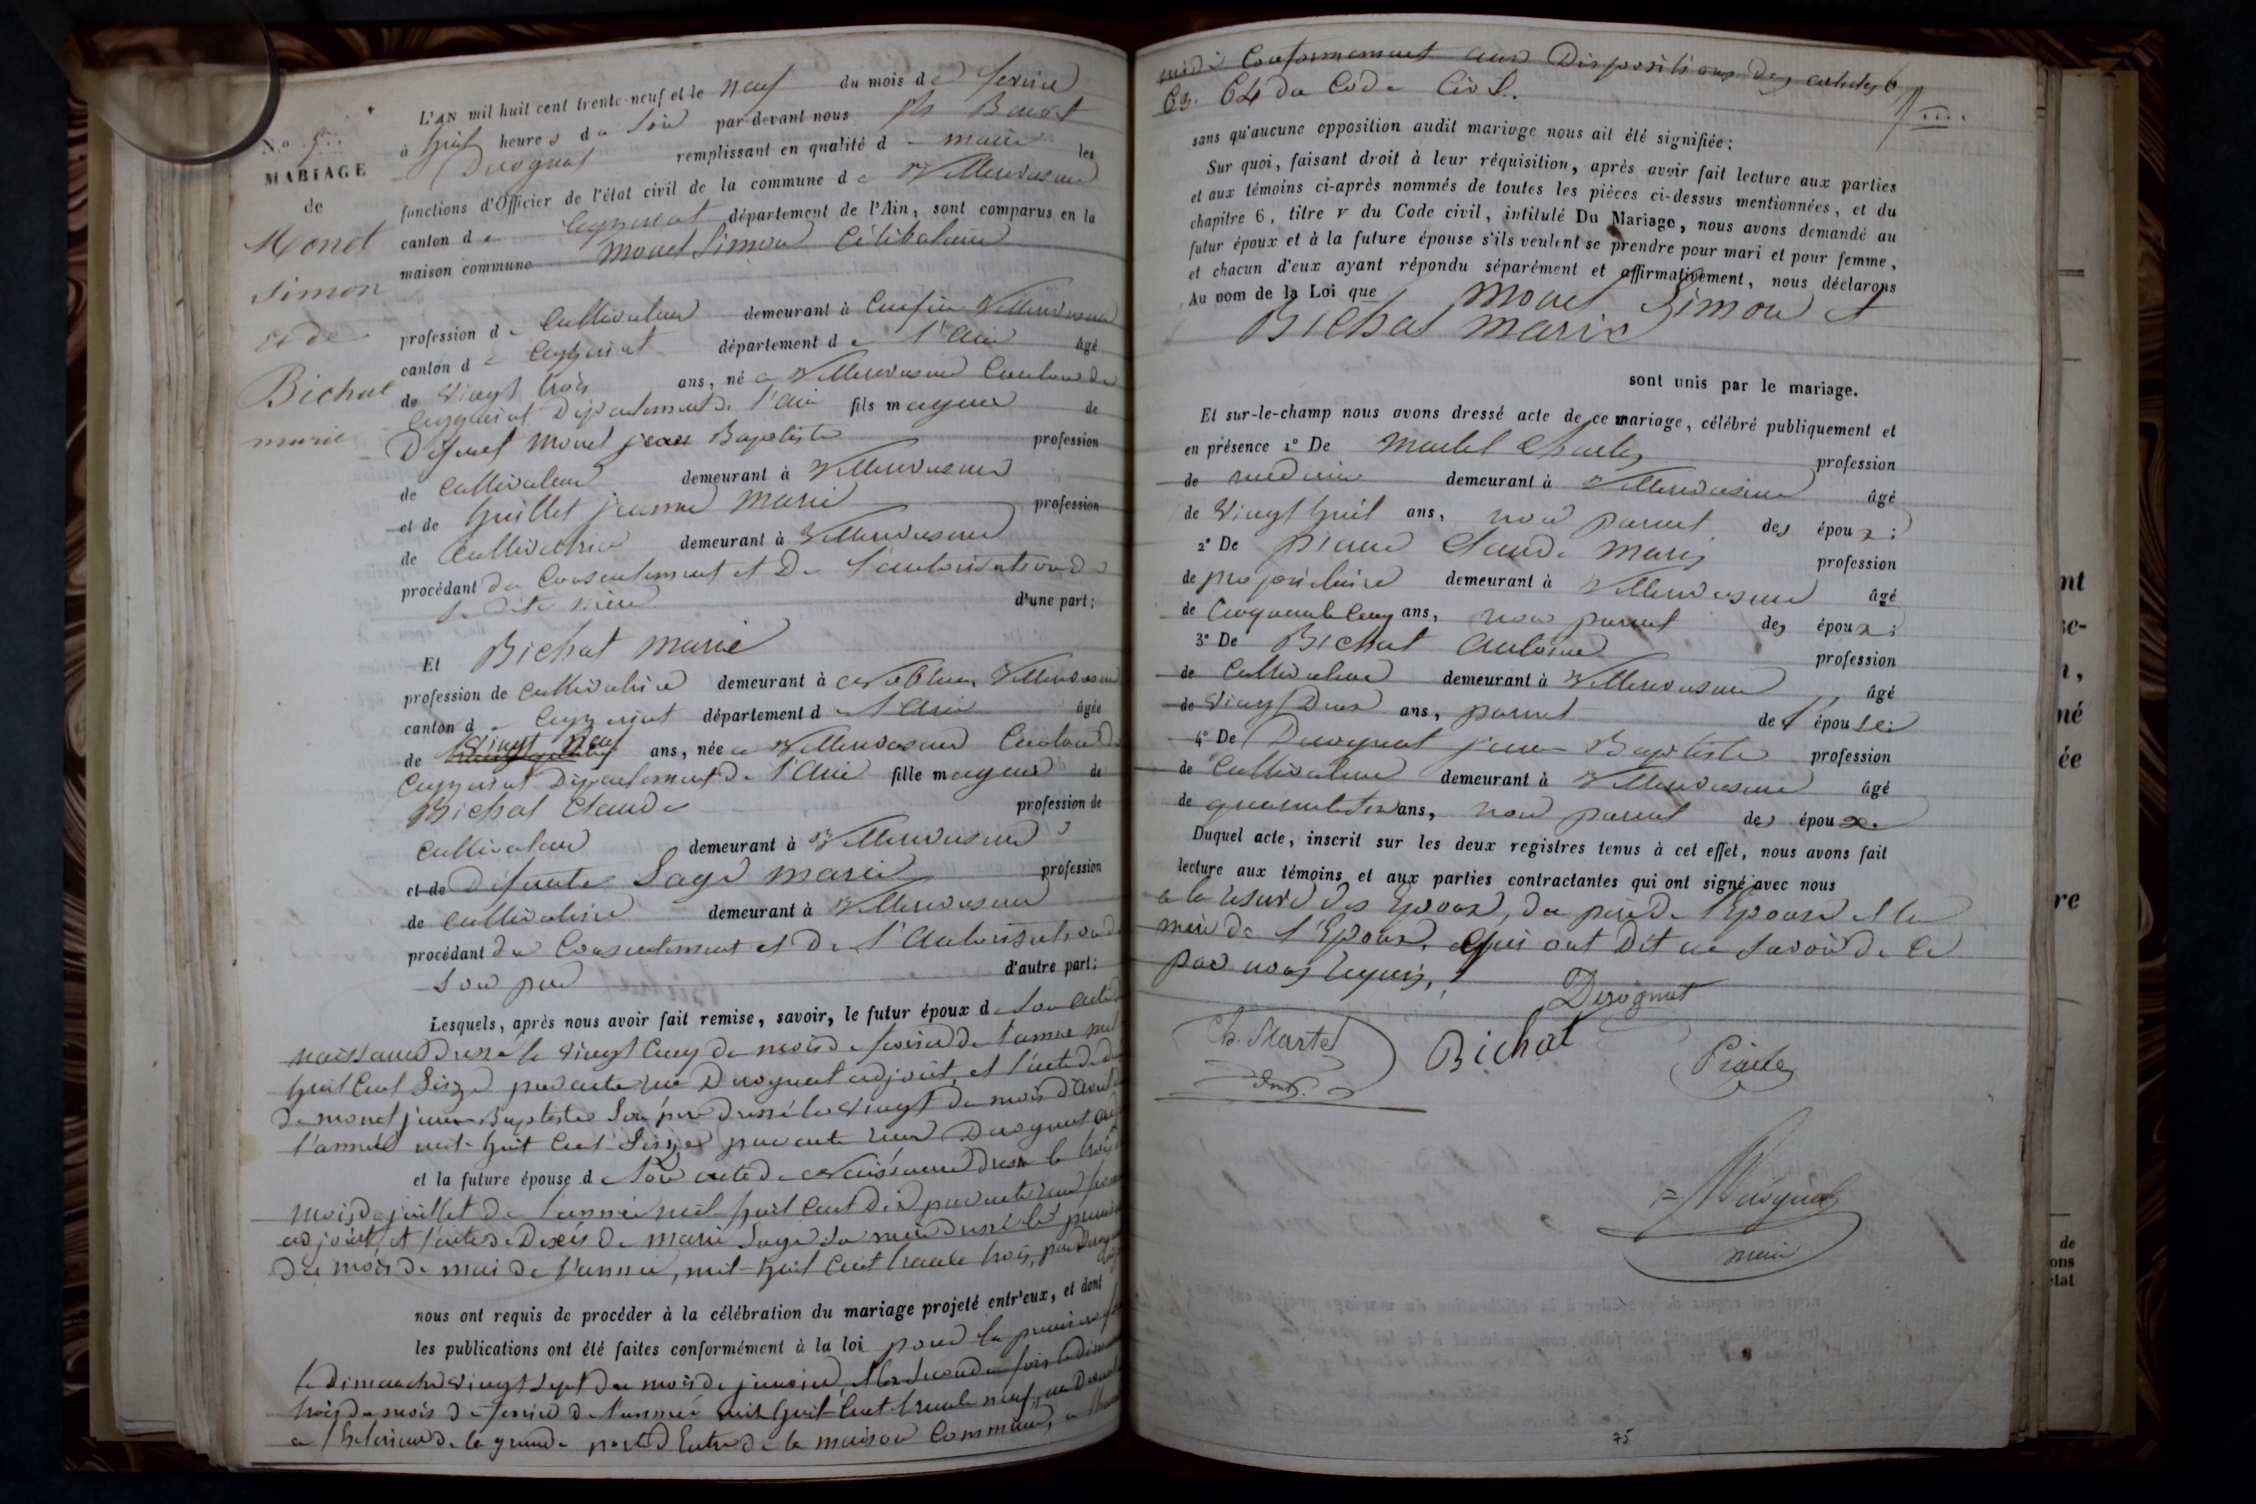 N.o 5
MARIAGE
de
Monet
Simon
et de
Bichat
marie
L'AN mil huit cent trente-neuf et le neuf du mois de fevrier
à huit heures du soir par-devant nous Benoit
Durognat remplissant en qualité de maire les
fonctions d'Officier de l'état civil de la commune de Villereversure
canton de Ceyzeriat département de l'Ain, sont comparus en la
maison commune Monet Simon Célibataire
profession de Cultivateur demeurant à Villereversure
canton de Ceyzeriat département de l'Ain âgé
de vingt trois ans, né à Villereversure Canton de
Ceyzeriat Département de l'Ain fils majeur de
Défunt Monet jean Baptiste profession
de Cultivateur demeurant à Villereversure
et de Guillet jeanne Marie profession
de Cultivatrice demeurant à Villereversure
procédant du Consentement et De l'autorisation de
sa dite mère d'une part;
Et Bichat Marie
profession de cultivatrice demeurant à Villereversure
canton de Ceyzeriat département de l'Ain âgée
de vingt neuf ans, née à Villereversure Canton de
Ceyzeriat Département de l'Ain fille majeure de
Bichat Claude profession de
Cultivateur demeurant à Villereversure
et de Défunte Sage Marie profession
de cultivatrice demeurant à Villereversure
procédant du Consentement et De l'Autorisation de
son père d'autre part;
Lesquels, après nous avoir fait remise, savoir, le futur époux de son acte de
naissance dressé le vingt cinq du mois de fevrier de l'année mil
huit Cent Seize par acte reçu Durognat adjoint, et l'acte de
De monet jean Baptiste Son père dressé le vingt du mois d'avril
l'année mil huit Cent Seize par acte reçu Durognat
et la future épouse de Son acte de Naissance dressé le trois
mois de juillet de l'année mil huit Cent Dix par acte reçu
adjoint, et l'acte de Décès de Marie Sage sa mère dressé le premier
du mois de mai de l'année, mil huit Cent trente trois, par
nous ont requis de procéder à la célébration du mariage projeté entr'eux, et dont
les publications ont été faites conformément à la loi pour la première fois
le Dimanche vingt sept du mois de janvier, et la Seconde fois le dimanche
trois du mois de fevrier de l'année mil huit Cent trente neuf, au Devant
à l'exterieur de la grande porte d'Entrée de la maison Commune, à
midi Conformement aux Dispositions des articles 6
63. 64 du Code Civil.
sans qu'aucune opposition audit mariage nous ait été signifiée:
Sur quoi, faisant droit à leur réquisition, après avoir fait lecture aux parties
et aux témoins ci-après nommés de toutes les pièces ci-dessus mentionnées, et du
chapitre 6, titre v du Code civil, intitulé Du Mariage, nous avons demandé au
futur époux et à la future épouse s'ils veulent se prendre pour mari et pour femme,
et chacun d'eux ayant répondu séparément et affirmativement, nous déclarons
Au nom de la Loi que Monet Simon et
Bichat Marie
sont unis par le mariage.
Et sur-le-champ nous avons dressé acte de ce mariage, célébré publiquement et
en présence 1° De Martel Charles profession
de médecin demeurant à Villereversure âgé
de vingt huit ans, non parent des époux;
2° De Claude Marie profession
de propriétaire demeurant à Villereversure âgé
de Cinquante Cinq ans, non parent des époux;
3° De Bichat Antoine profession
de Cultivateur demeurant à Villereversure âgé
de vingt Deux ans, parent de l'épouse;
4° De Durognat jean Baptiste profession
de Cultivateur demeurant à Villereversure âgé
de ans, non parent des époux.
Duquel acte, inscrit sur les deux registres tenus à cet effet, nous avons fait
lecture aux témoins et aux parties contractantes qui ont signé avec nous
à la réserve des Epoux, du père de l'Epouse et la
mère de l'Epoux, qui ont Dit ne savoir de ce
par nous requis,
Durognat
Ch. Martel Bichat
maire
75